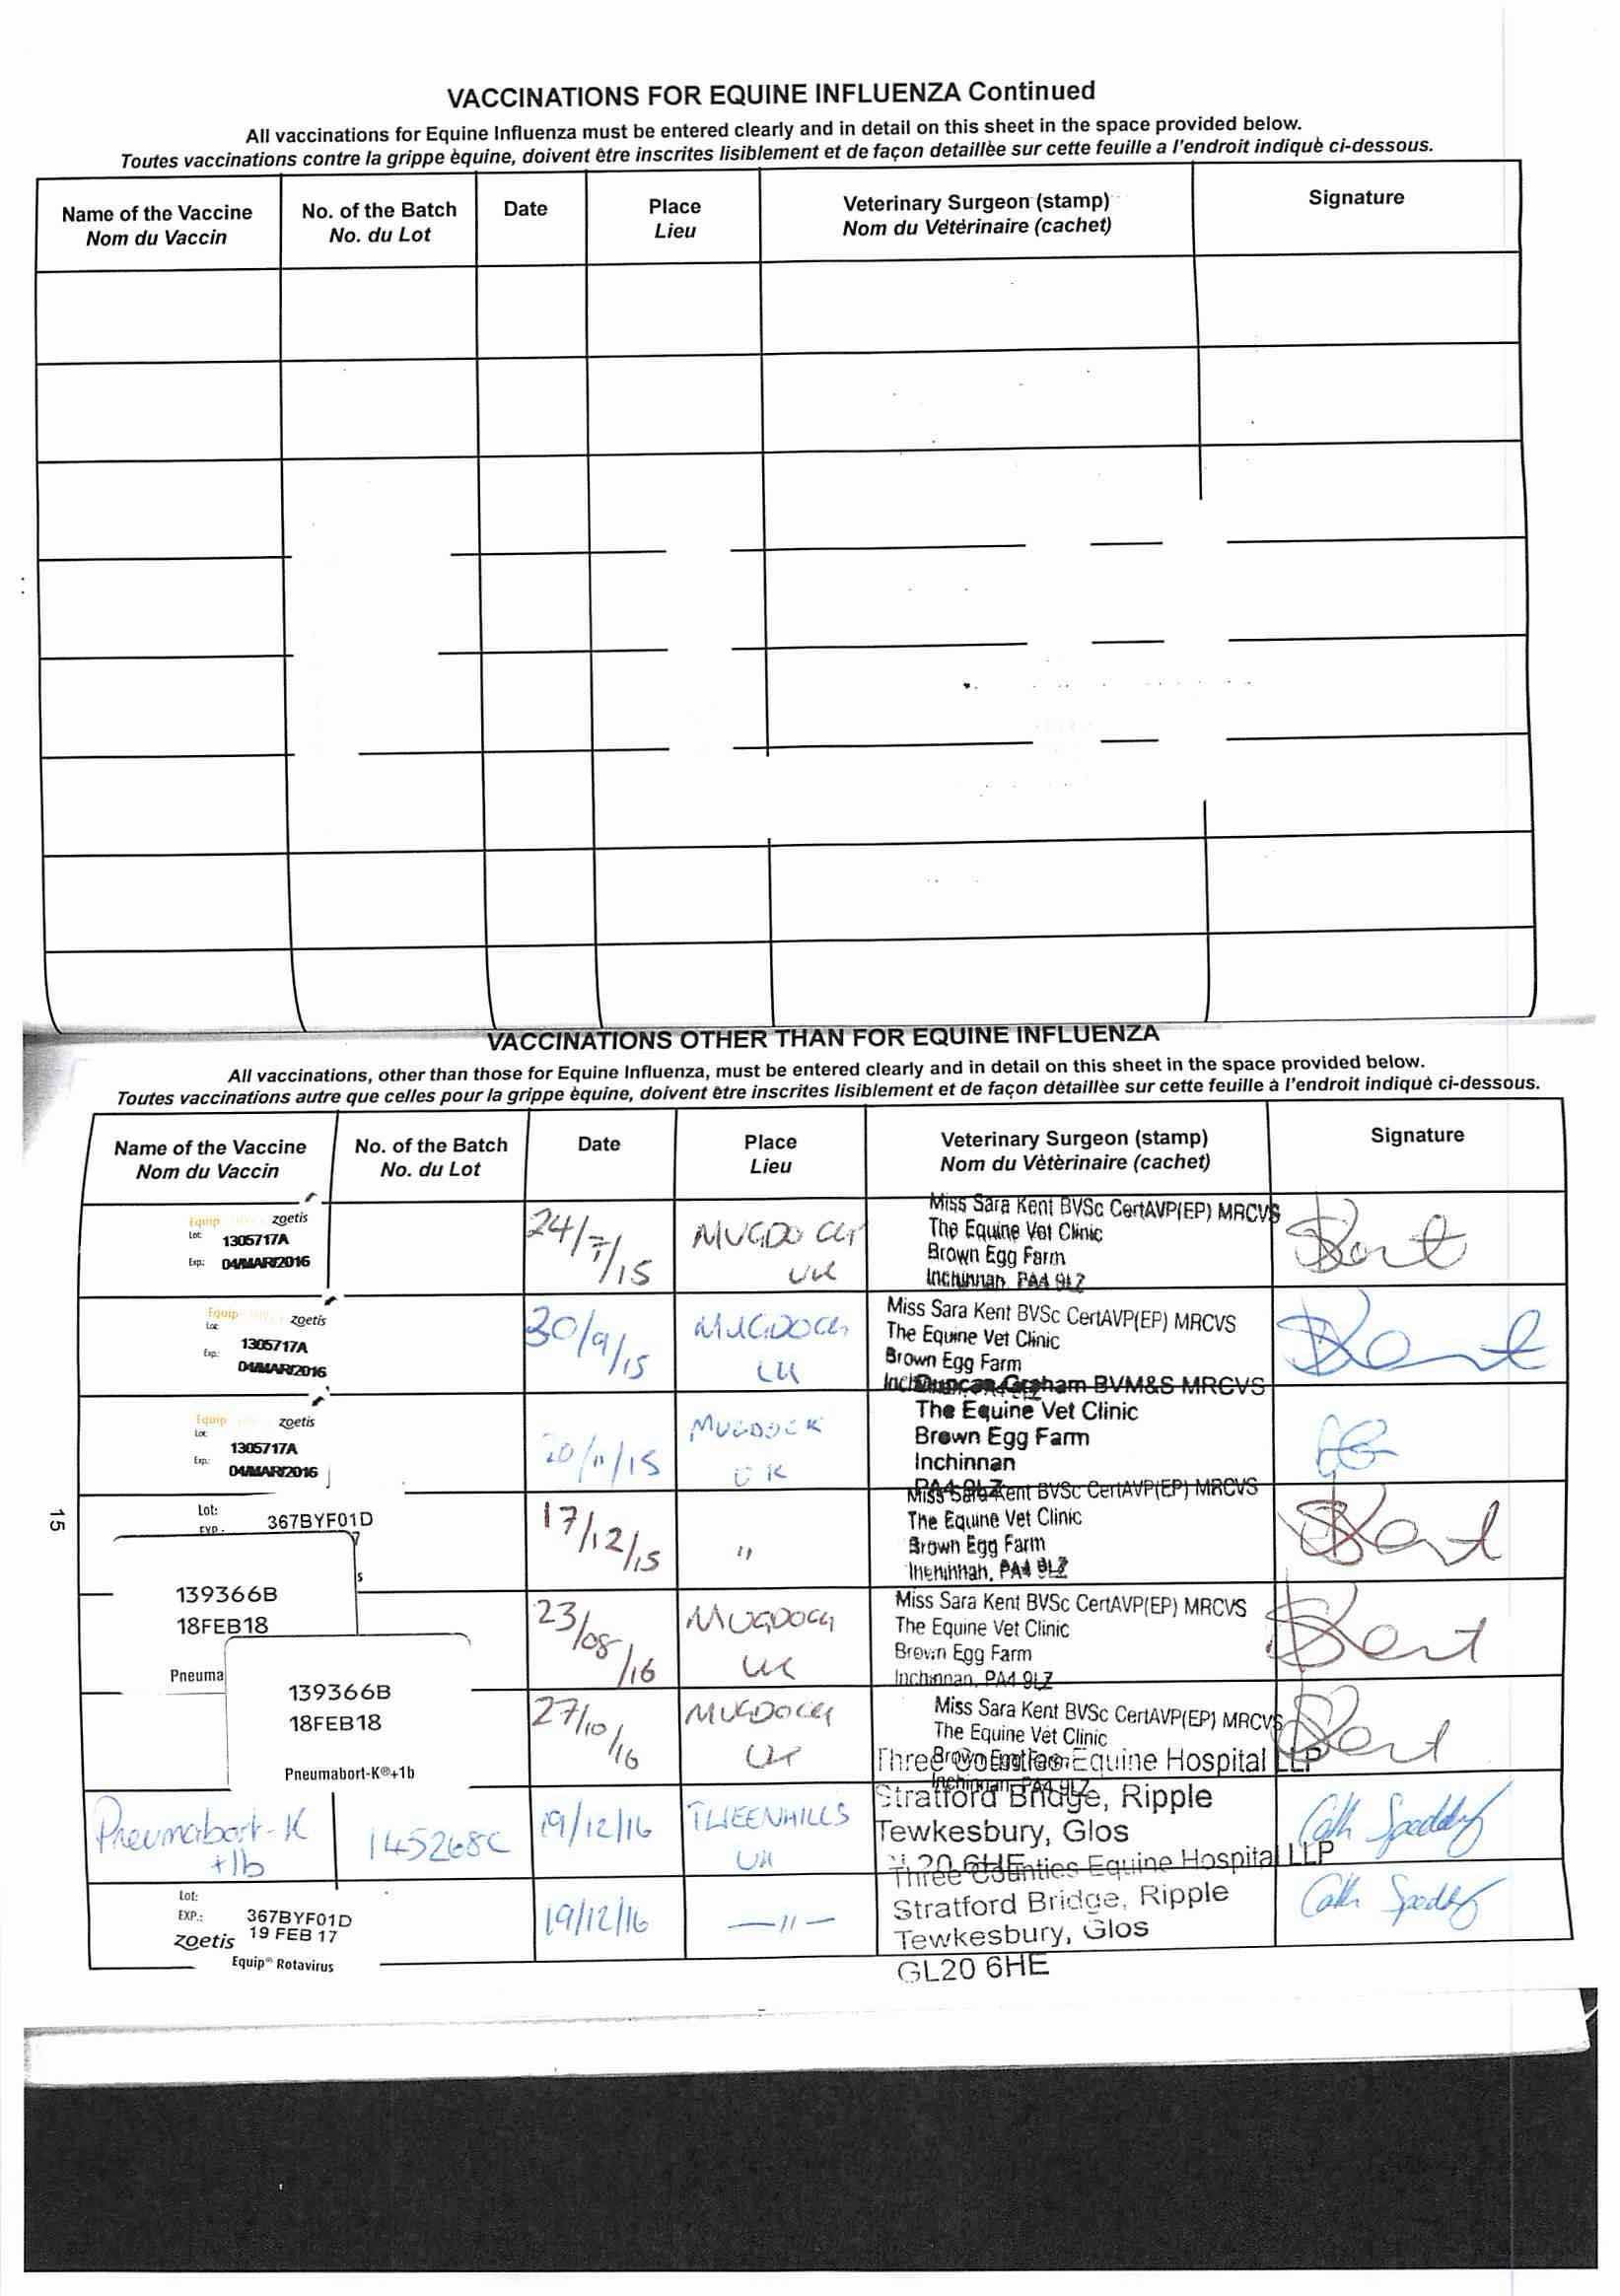 VACCINATIONS FOR EQUINE INFLUENZA Continued
All vaccinations for Equine Influenza must be entered clearly and in detail on this sheet in the space provided below.
Toutes vaccinations contre la grippe èquine, doivent être inscrites lisiblement et de façon detaillèe sur cette feuille a l'endroit indiquè ci-dessous.
Name of the Vaccine No. of the Batch Date Place Veterinary Surgeon (stamp) Signature
Nom du Vaccin No. du Lot Lieu Nom du Vètèrinaire (cachet)
VACCINATIONS OTHER THAN FOR EQUINE INFLUENZA
All vaccinations, other than those for Equine Influenza, must be entered clearly and in detail on this sheet in the space provided below.
Toutes vaccinations autre que celles pour la grippe èquine, doivent être inscrites lisiblement et de façon dètaillèe sur cette feuille à l'endroit indiquè ci-dessous.
Name of the Vaccine No. of the Batch Date Place Veterinary Surgeon (stamp) Signature
Nom du Vaccin No. du Lot Lieu Nom du Vètèrinaire (cachet)
Equip zoetis
Lot: 1305717A
Exp: 04/MAR/2016
24/7/15
MUGDOCK
UK
Miss Sara Kent BVSc CertAVP(EP) MRCVS
The Equine Vet Clinic
Brown Egg Farm
Inchinnan, PA4 9LZ
SKent
Equip zoetis
Lot:
1305717A
Exp:
04/MAR/2016
30/9/15
MUGDOCK
UK
Miss Sara Kent BVSc CertAVP(EP) MRCVS
The Equine Vet Clinic
Brown Egg Farm
SKent
Equip zoetis
Lot:
1305717A
Exp:
04/MAR/2016
20/11/15
MUGDOCK
UK
Duncan Graham BVM&S MRCVS
The Equine Vet Clinic
Brown Egg Farm
Inchinnan
PA4 9LZ
15
Lot: 367BYF01D
EXP.:
17/12/15
"
Miss Sara Kent BVSc CertAVP(EP) MRCVS
The Equine Vet Clinic
Brown Egg Farm
Inchinnan, PA4 9LZ
SKent
139366B
18FEB18
Pneuma
23/08/16
MUGDOCK
UK
Miss Sara Kent BVSc CertAVP(EP) MRCVS
The Equine Vet Clinic
Brown Egg Farm
Inchinnan, PA4 9LZ
SKent
139366B
18FEB18
Pneumabort-K®+1b
27/10/16
MUGDOCK
UK
Miss Sara Kent BVSc CertAVP(EP) MRCVS
The Equine Vet Clinic
Brown Egg Farm
Inchinnan, PA4 9LZ
SKent
Pneumabort-K
+1b
145268C
19/12/16
TWEENHILLS
UK
Three Counties Equine Hospital LLP
Stratford Bridge, Ripple
Tewkesbury, Glos
GL20 6HE
Cath Spedding
Lot: 367BYF01D
EXP.: 19 FEB 17
zoetis
Equip® Rotavirus
19/12/16
—"—
Three Counties Equine Hospital LLP
Stratford Bridge, Ripple
Tewkesbury, Glos
GL20 6HE
Cath Spedding